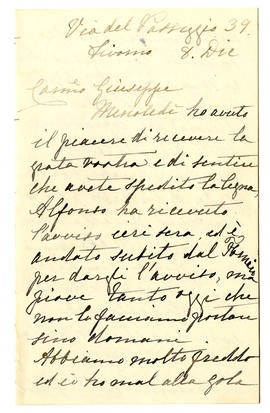 Via del Passeggio 39.
Livorno 8. Dic
Carmo Giuseppe
Mercoledì ho avuto
il piacere di ricevere la
grata vostra e di sentire
che avete spedito la legna,
Alfonso ha ricevuto
l'avviso ieri sera, ed è
andato subito dal
per dargli l'avviso, ma
piove tanto oggi che
non la facciamo portare
sino domani
Abbiamo molto freddo
ed io ho mal alla gola